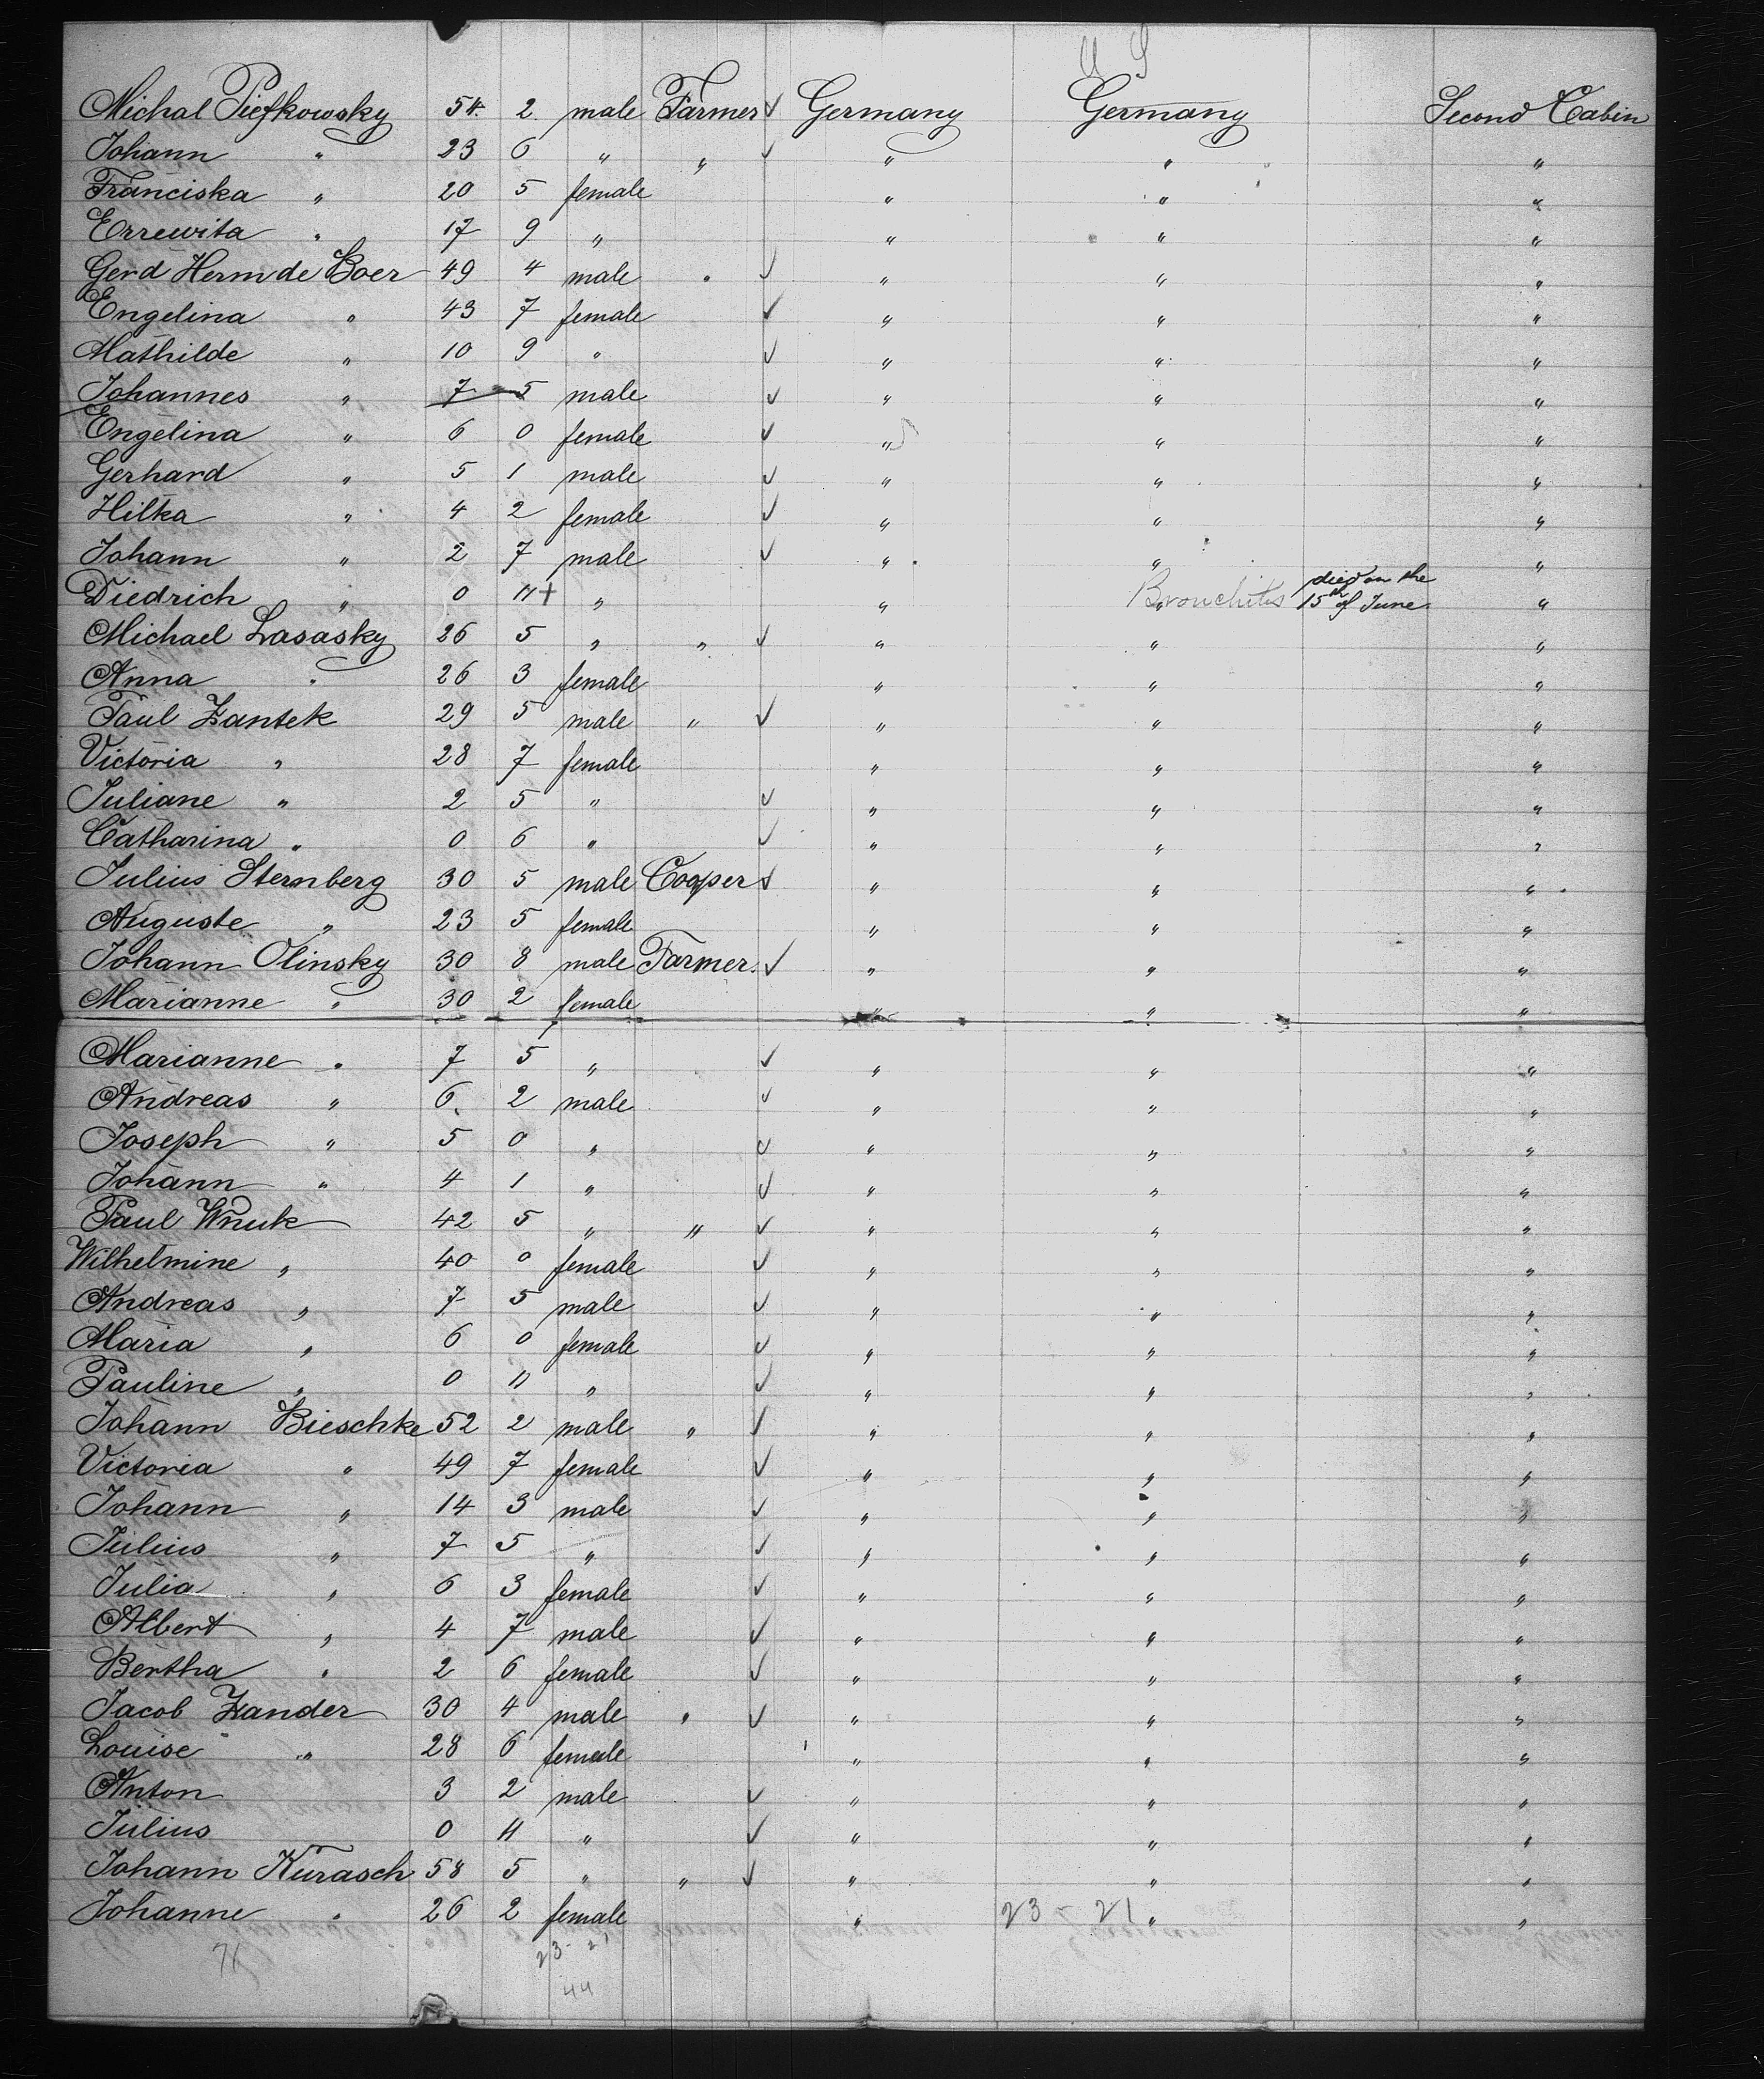 U S
Michal Piefkowsky 54. 2. male Farmer ✓ Germany Germany Second Cabin
Johann " 23 6 " " ✓ " " "
Franciska " 20 5 female " " "
Errewita " 17 9 " " " "
Gerd Herm de Boer 49 4 male " ✓ " " "
Engelina " 43 7 female ✓ " " "
Mathilde " 10 9 " ✓ " " "
Johannes " 7 5 male ✓ " " "
Engelina " 6 0 female ✓ " " "
Gerhard " 5 1 male ✓ " " "
Hilka " 4 2 female ✓ " " "
Johann " 2 7 male ✓ " " "
Diedrich " 0 11 + " " " Bronchitis died on the 15th of June "
Michael Lasasky 26 5 " " ✓ " " "
Anna " 26 3 female " " "
Paul Zantek 29 5 male " ✓ " " "
Victoria " 28 7 female " " "
Juliane " 2 5 " ✓ " " "
Catharina " 0 6 " ✓ " " "
Julius Sternberg 30 5 male Cooper ✓ " " "
Auguste " 23 5 female " " "
Johann Olinsky 30 8 male Farmer. ✓ " " "
Marianne " 30 2 female " " "
Marianne " 7 5 " ✓ " " "
Andreas " 6. 2 male ✓ " " "
Joseph " 5 0 " ✓ " " "
Johann " 4 1 " ✓ " " "
Paul Wnuk 42 5 " " ✓ " " "
Wilhelmine " 40 0 female ✓ " " "
Andreas " 7 5 male ✓ " " "
Maria " 6 0 female ✓ " " "
Pauline " 0 11 " ✓ " " "
Johann Bieschke 52 2 male " ✓ " " "
Victoria " 49 7 female ✓ " " "
Johann " 14 3 male ✓ " " "
Julius " 7 5 " ✓ " " "
Julia " 6 3 female ✓ " " "
Albert " 4 7 male ✓ " " "
Bertha " 2 6 female ✓ " " "
Jacob Zander 30 4 male " ✓ " " "
Louise " 28 6 female " " "
Anton 3 2 male ✓ " " "
Julius 0 11 " ✓ " " "
Johann Kurasch 58 5 " " ✓ " " "
Johanne " 26 2 female " 23 - 21 " "
23 - 21
44